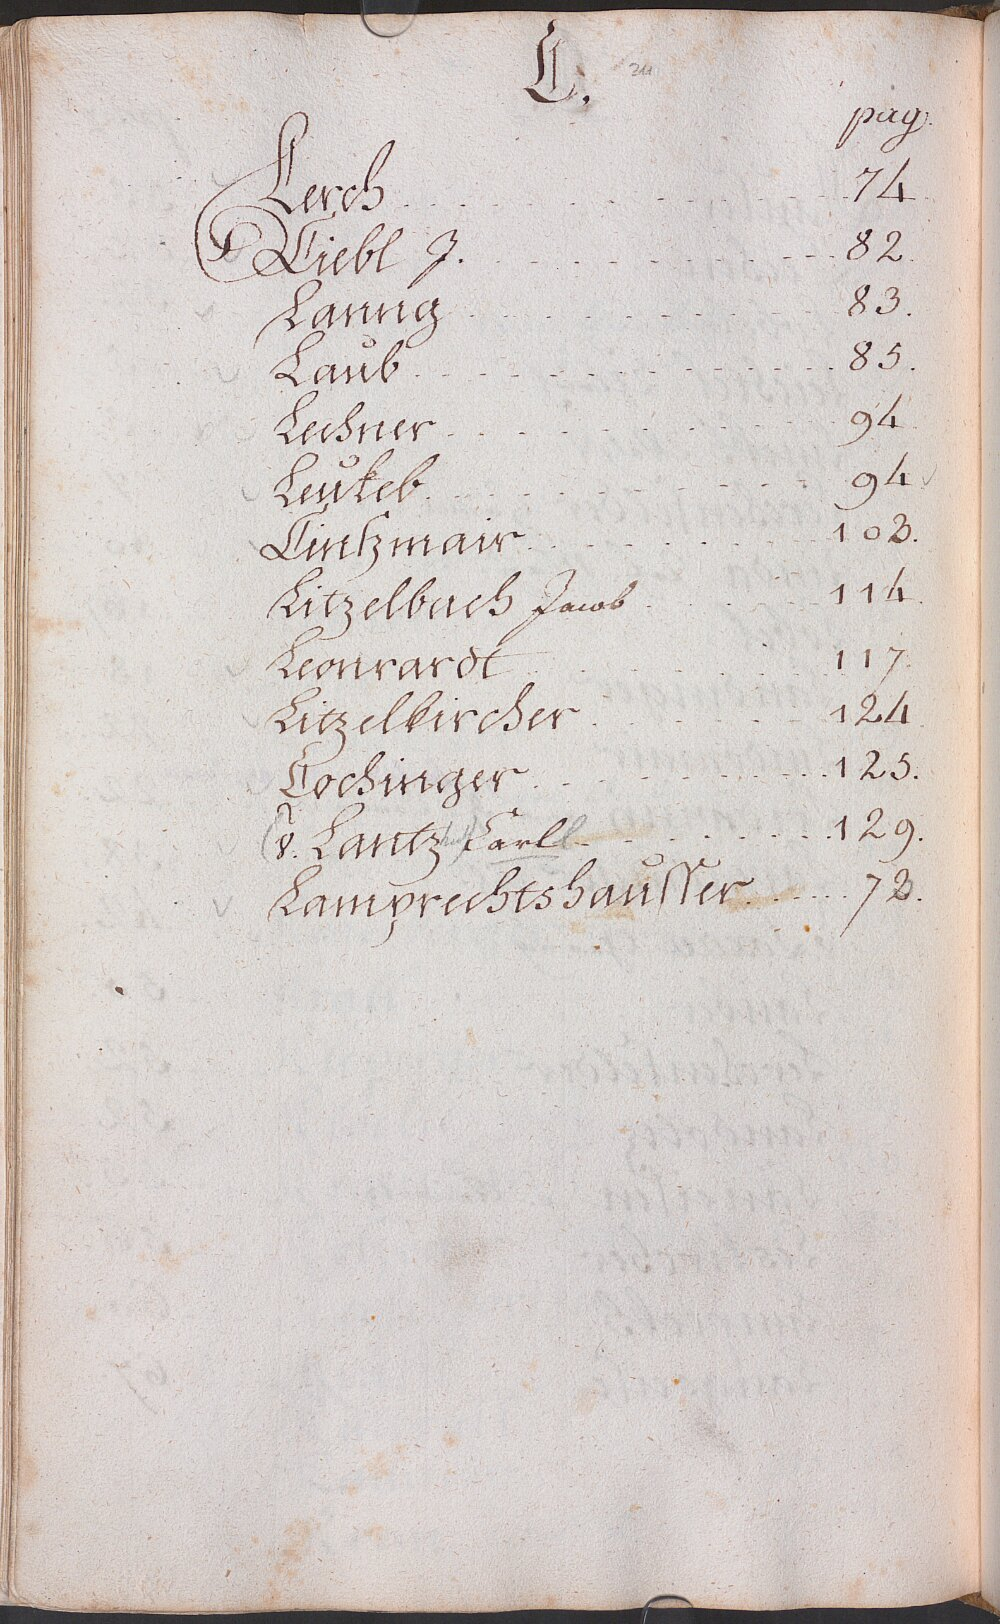 L.
pag.
Lerch . . . . . . . . . . . 74
Liebl J. . . . . . . . . . . 82.
Lanng . . . . . . . . . . . 83.
Laub . . . . . . . . . . . 85.
Lechner . . . . . . . . . . 94
Leukeb . . . . . . . . . . 94
Lintzmair . . . . . . . . . 103.
Litzelbach Jacob . . . . . . 114.
Leonrardt . . . . . . . . . 117.
Litzelkircher . . . . . . . . 124
Lochinger . . . . . . . . . 125.
v. Lantz Carl . . . . . . . . 129.
Lamprechtshausser . . . . . 73.